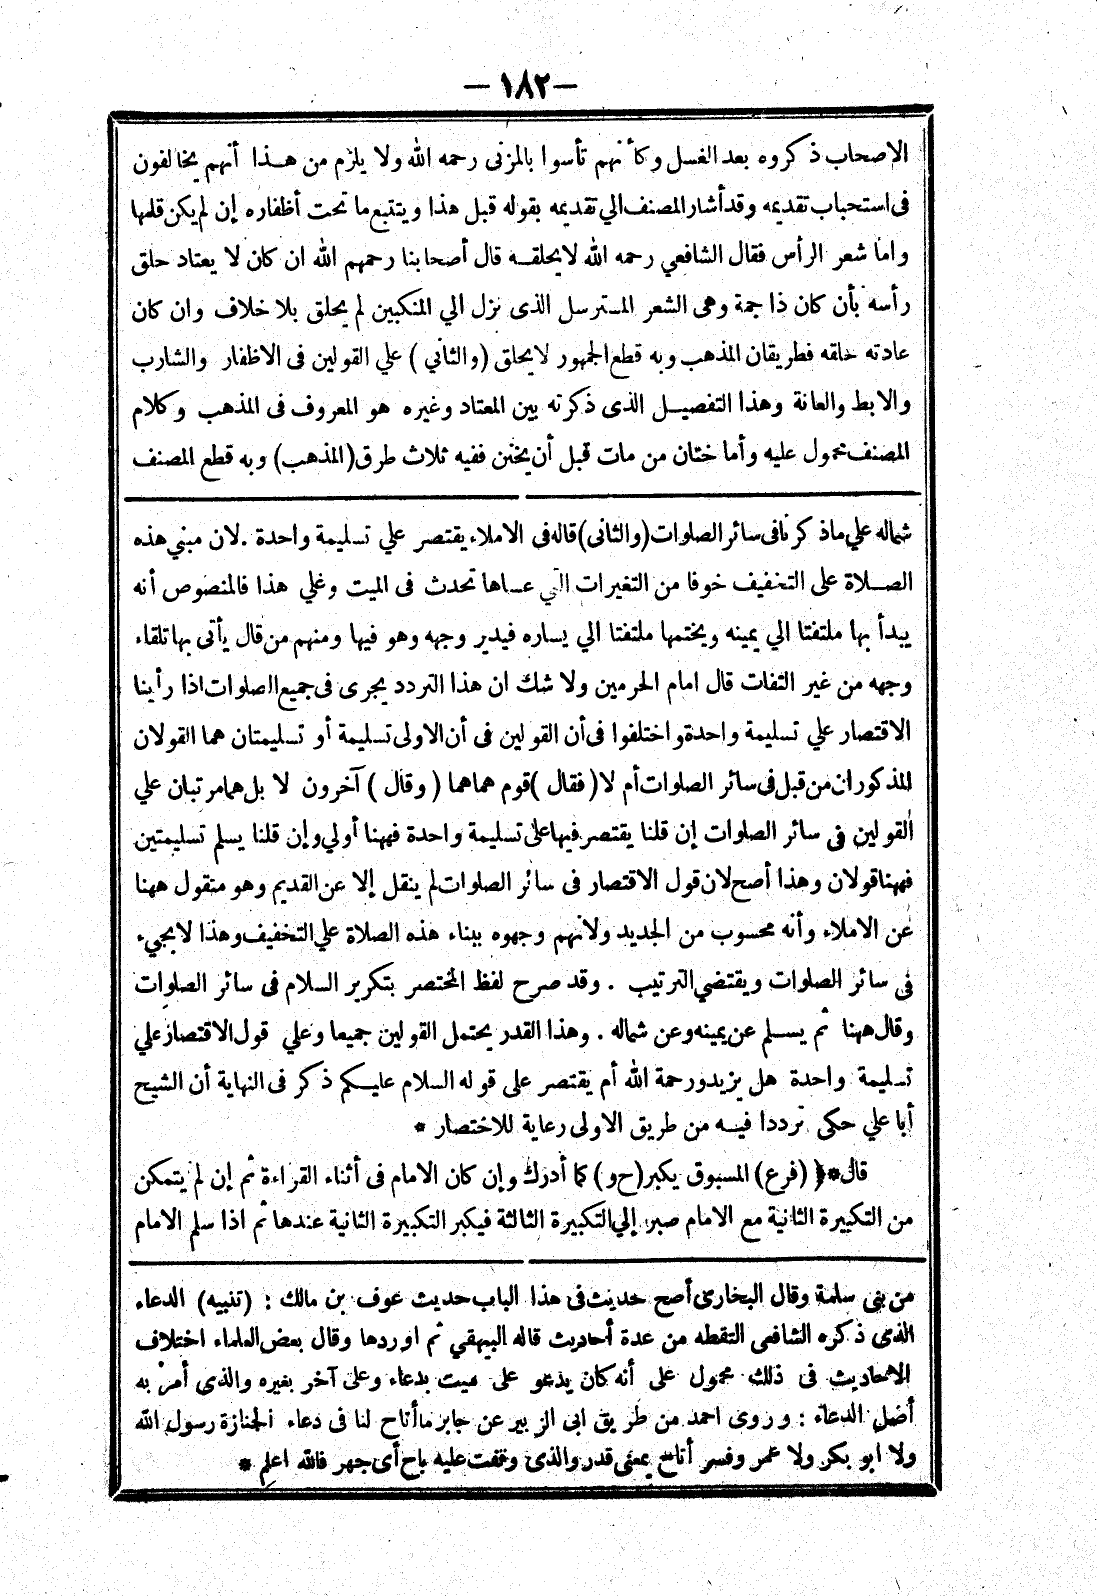 — ١٨٢ —
الاصحاب ذكروه بعد الغسل وكأنهم تأسوا بالمزنى رحمه الله ولا يلزم من هذا أنهم يخالفون
فى استحباب تقديمه وقد أشار المصنف الي تقديمه بقوله قبل هذا ويتتبع ما تحت أظفاره إن لم يكن قلمها
واما شعر الرأس فقال الشافعي رحمه الله لا يحلقه قال أصحابنا رحمهم الله ان كان لا يعتاد حلق
رأسه بأن كان ذا جمة وهى الشعر المسترسل الذى نزل الي المنكبين لم يحلق بلا خلاف وان كان
عادته حلقه فطريقان المذهب وبه قطع الجمهور لا يحلق (والثاني) علي القولين فى الاظفار والشارب
والابط والعانة وهذا التفصيل الذى ذكرته بين المعتاد وغيره هو المعروف فى المذهب وكلام
المصنف محمول عليه وأما ختان من مات قبل أن يختن ففيه ثلاث طرق (المذهب) وبه قطع المصنف
شماله علي ماذكرنا فى سائر الصلوات (والثانى) قاله فى الاملاء يقتصر علي تسليمة واحدة . لان مبني هذه
الصلاة على التخفيف خوفا من التغيرات التي عساها تحدث فى الميت وعلي هذا فالمنصوص أنه
يبدأ بها ملتفتا الي يمينه ويختمها ملتفتا الي يساره فيدير وجهه وهو فيها ومنهم من قال يأتى بها تلقاء
وجهه من غير التفات قال امام الحرمين ولا شك ان هذا التردد يجرى فى جميع الصلوات اذا رأينا
الاقتصار علي تسليمة واحدة واختلفوا فى أن القولين فى أن الاولى تسليمة أو تسليمتان هما القولان
المذكوران من قبل فى سائر الصلوات أم لا (فقال) قوم هما هما (وقال) آخرون لا بل هما مرتبان علي
القولين فى سائر الصلوات إن قلنا يقتصر فيها على تسليمة واحدة فههنا أولي وإن قلنا يسلم تسليمتين
فههنا قولان وهذا أصح لان قول الاقتصار فى سائر الصلوات لم ينقل إلا عن القديم وهو منقول ههنا
عن الاملاء وأنه محسوب من الجديد ولانهم وجهوه ببناء هذه الصلاة علي التخفيف وهذا لا يجيء
فى سائر الصلوات ويقتضي الترتيب . وقد صرح لفظ المختصر بتكرير السلام فى سائر الصلوات
وقال ههنا ثم يسلم عن يمينه وعن شماله . وهذا القدر يحتمل القولين جميعا وعلي قول الاقتصار علي
تسليمة واحدة هل يزيد ورحمة الله أم يقتصر على قوله السلام عليكم ذكر فى النهاية أن الشيخ
أبا علي حكى ترددا فيه من طريق الاولى رعاية للاختصار *
قال * ﴿ (فرع) المسبوق يكبر (ح و) كما أدرك وإن كان الامام فى أثناء القراءة ثم إن لم يتمكن
من التكبيرة الثانية مع الامام صبر إلي التكبيرة الثالثة فيكبر التكبيرة الثانية عندها ثم اذا سلم الامام
من بنى سلمة وقال البخارى أصح حديث فى هذا الباب حديث عوف بن مالك : (تنبيه) الدعاء
الذى ذكره الشافعى التقطه من عدة أحاديث قاله البيهقي ثم اوردها وقال بعض العلماء اختلاف
الاحاديث فى ذلك محمول على أنه كان يدعو على ميت بدعاء وعلى آخر بغيره والذى أمر به
أصل الدعاء : وروى احمد من طريق ابى الزبير عن جابر ما أتاح لنا فى دعاء الجنازة رسول الله
ولا ابو بكر ولا عمر وفسر أتاح بمعنى قدر والذى وقفت عليه باح أى جهر فالله اعلم *